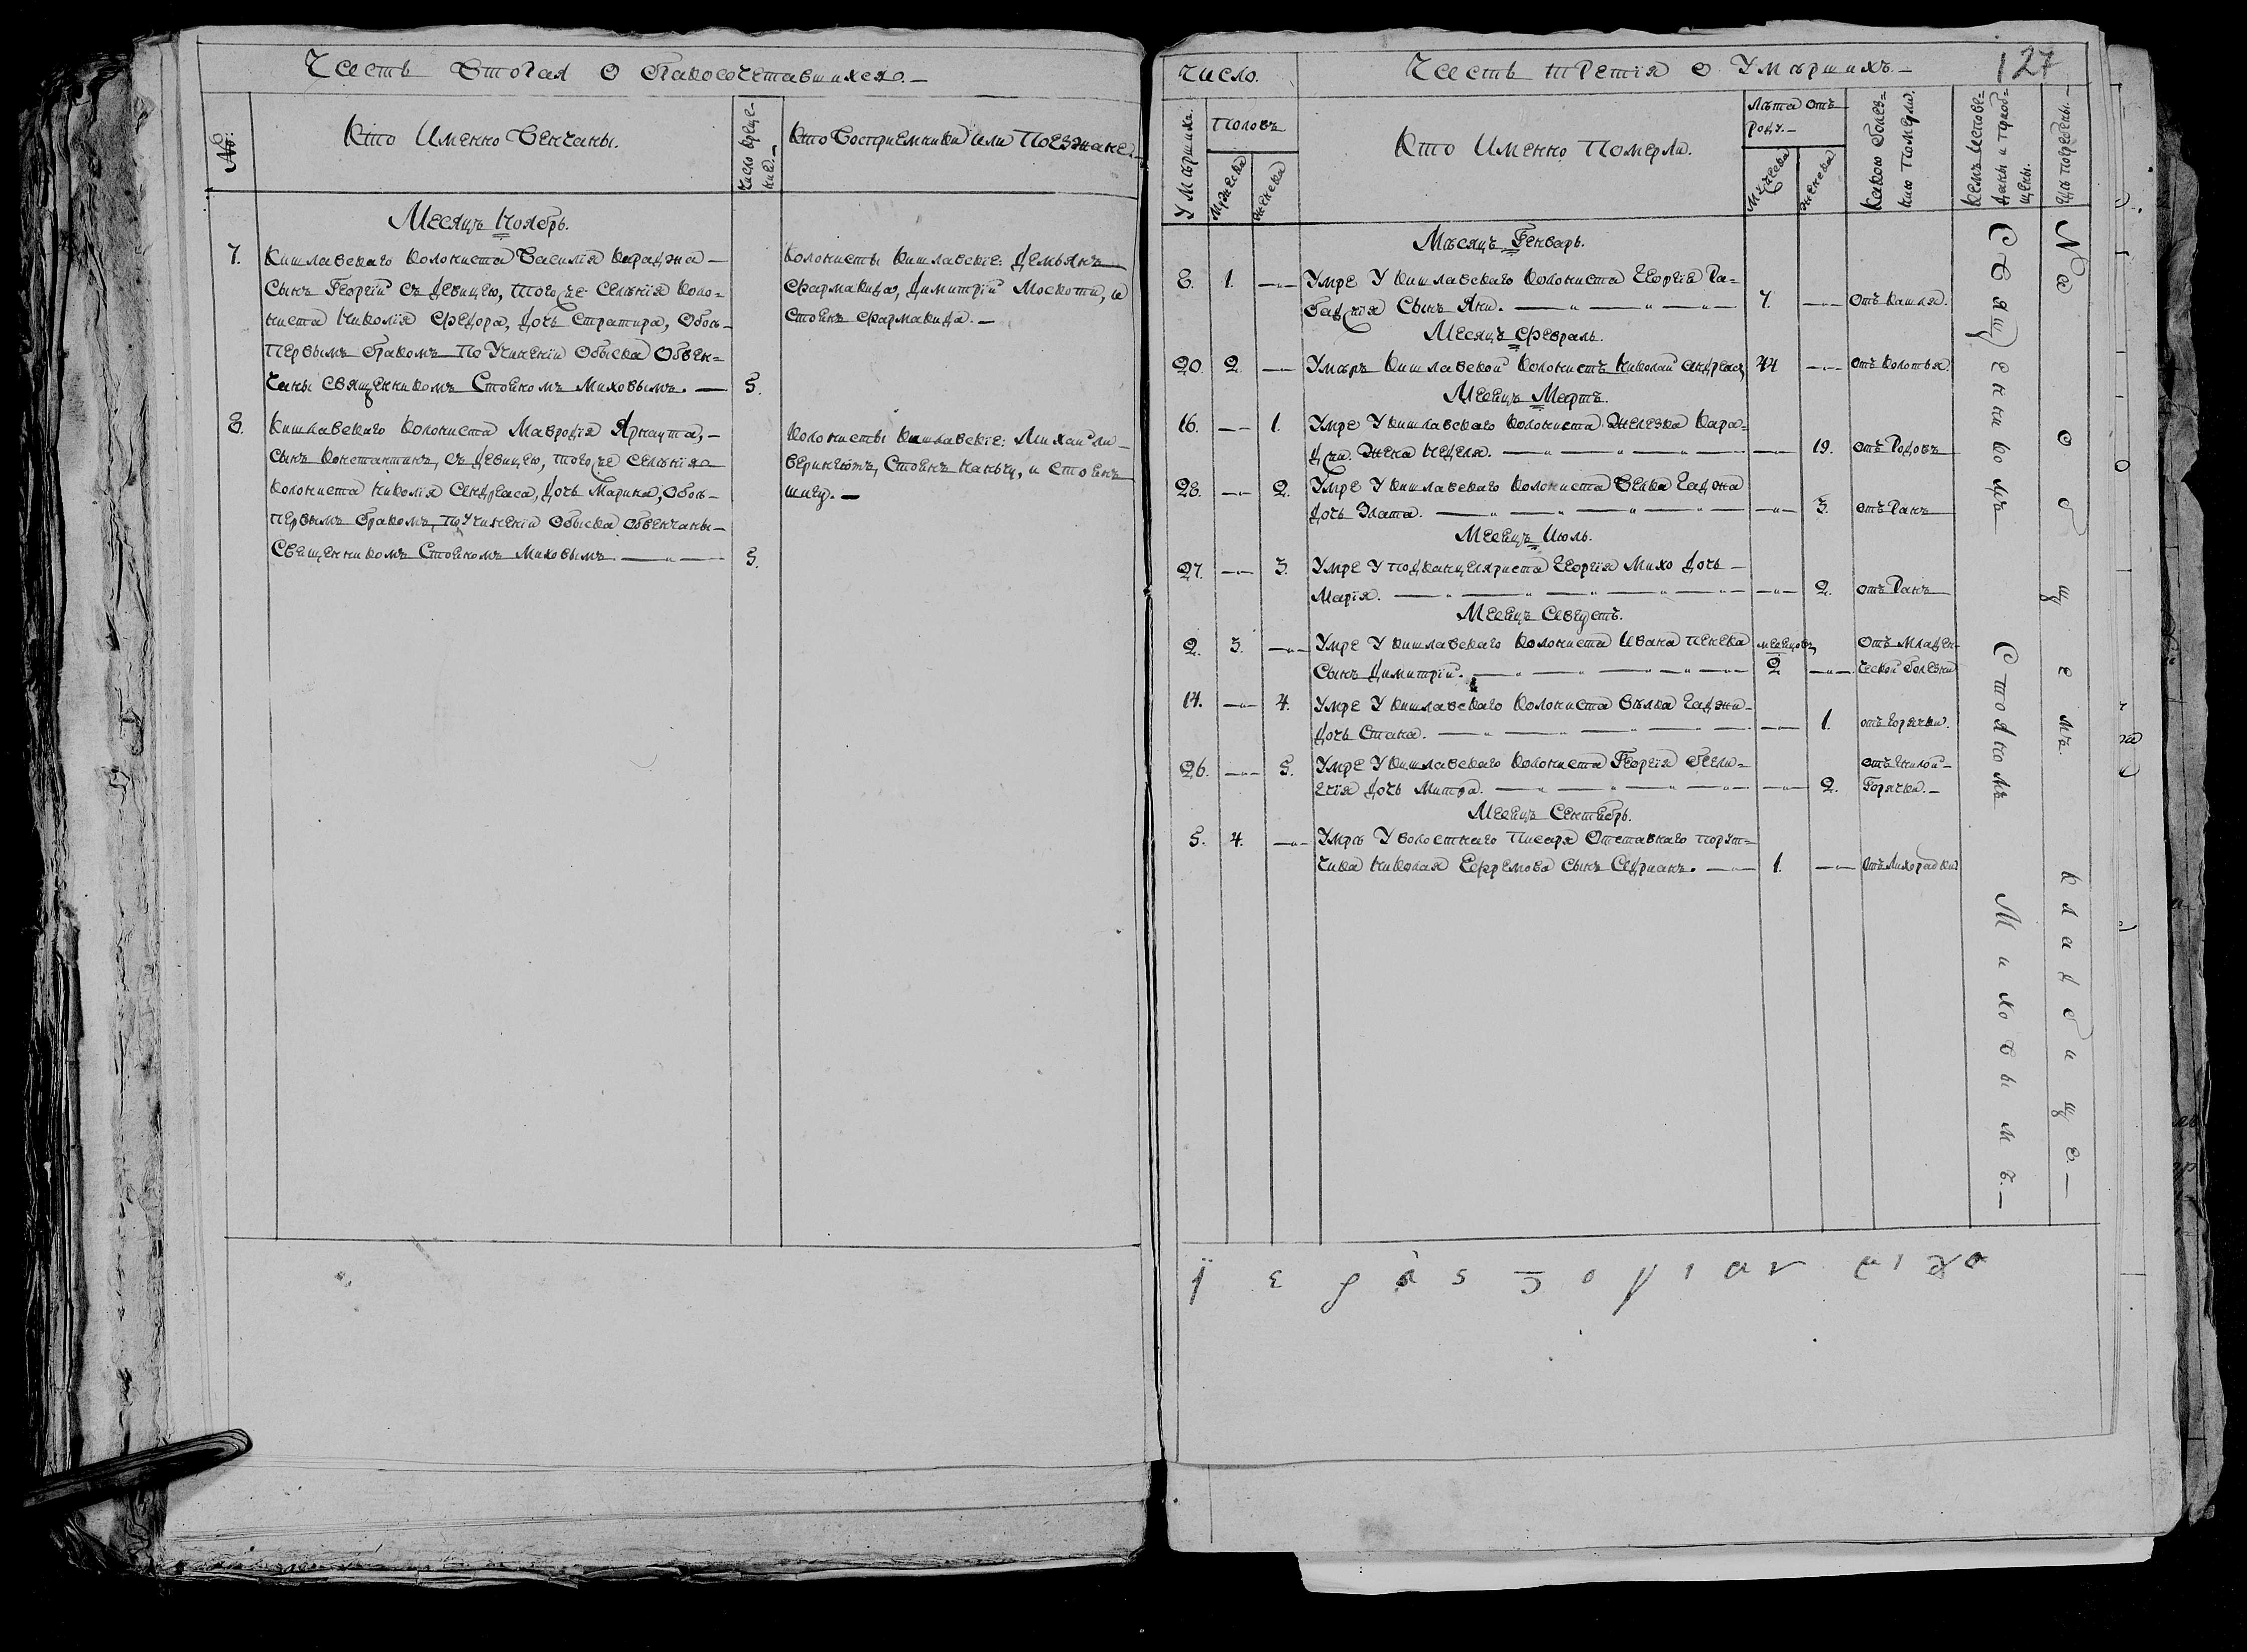 Часть Вторая О бракосочетавшихся.–
№:
Кто Именно Венчаны.
Число Венце-
ние.–
Кто Восприемники или Поезжане.–
Месяцъ Ноябрь.
7.
Кишлавскаго Колониста Василія Караджа –
Сынъ Георгій съ девицею, того же Селенія Коло-
ниста Николія Федора, дочь Стратира, Обоь-
первымъ бракомъ По Учиненіи Обыска Обвен-
чаны священникомъ Стояномъ Миховымъ. – 5.
Колонисты Кишлавскіе: Демьянъ
Фармакида, Димитрій Москоти, и
Стоянъ Фармакида. –
8.
Кишлавскаго Колониста Мавродія Арнаута, –
Сынъ Константинъ, съ девицею, того же Селенія
Колониста Николія Сендреаса, дочь Марина, Обоь-
первымъ бракомъ, по Учиненіи Обыска Обвенчаны –
Священникомъ Стояномъ Миховымъ – 5.
Колонисты Кишлавскіе: Михаилъ
Стоянъ и Стоянъ
127
Число.
Часть третія о Умершихъ –
Умершихъ.
Половъ
Мужеска
женска
Кто Именно Померли.
Лета отъ
роду. –
Мужеска
женска
Какою болез-
нию Померли.
Кемъ Испове-
даны и приоб-
щены.
Где погребены. –
Месяцъ Генварь.
8. 1. –„– Умре У Кишлавскаго Колониста Георгія Ра-
Сынъ Яни. – „ – „ – „ – 7. –„– отъ Кашля.
Месяцъ Февраль.
20. 2. –„– Умеръ Кишлавской Колонистъ Николай Андреа, 44 –„– отъ Колотья.
Месяцъ Мартъ.
16. –„– 1. Умре У Кишлавскаго Колониста Железка Кара-
джи. Жена Неделя. – „ – „ – „ – –„– 19. отъ Родовъ
28. –„– 2. Умре У Кишлавскаго Колониста Велка Гаджи
дочь Злата. – „ – „ – „ – –„– 3. отъ Ранъ
Месяцъ Июль.
27. –„– 3. Умре У подканцеляриста Георгія Михо дочь –
Марія. – „ – „ – „ – „ – –„– 2. отъ Ранъ
Месяцъ Августъ.
2. 3. –„– Умре У Кишлавскаго Колониста Ивана Пенека месяцовъ Отъ младен-
Сынъ Димитрій. – „ – „ – „ – 2 –„– ческой болезни
14. –„– 4. Умре У Кишлавскаго Колониста Вълка Гаджи –
дочь Стана. – „ – „ – „ – –„– 1. отъ горячки.
26. –„– 5. Умре У Кишлавскаго Колониста Георгія
дочь Митра. – „ – „ – „ – –„– 2. отъ Гнилой –
Горячки. –
Месяцъ Сентябрь.
5. 4. –„– Умре У Волостнаго Писаря Отставнаго порут-
чика Николая Ефремова сынъ Сідрианъ. – 1. –„– отъ Лихорадки
Священикомъ Стояномъ Миховымъ. –
На общемъ кладбище. –